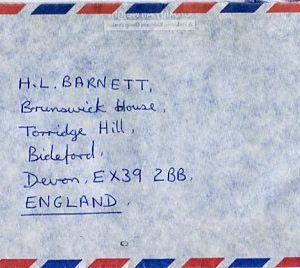 H.L. BARNETT,
Brunswick House,
Torridge Hill,
Bideford,
Devon, EX39 2BB.
ENGLAND.